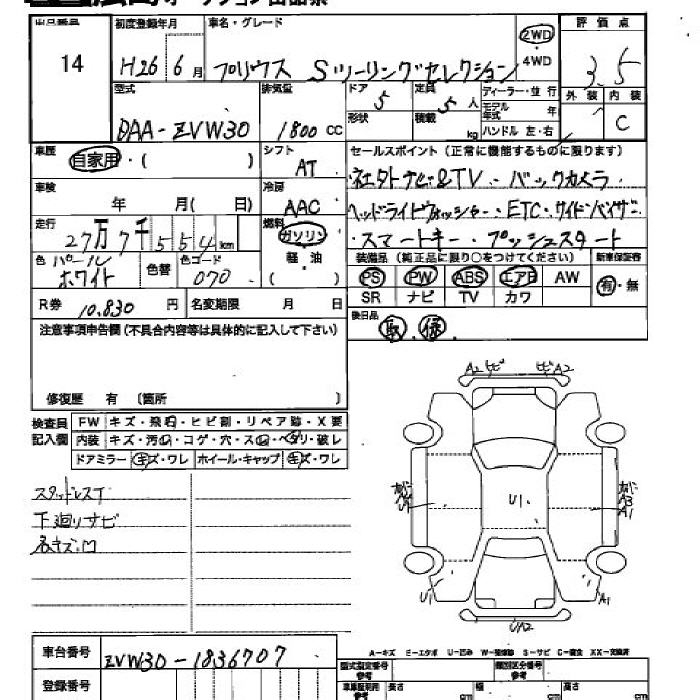 出品番号
14
初度登録年月
H26 6月
車名・グレード
プリウス Sツーリングセレクション
2WD
4WD
評価点
3.5
型式
DAA-ZVW30
排気量
1800 CC
ドア
5
形状
定員
5人
積載
kg
ディーラー・並行
モデル年式 年
ハンドル 左・右
外装
内装
C
車歴
自家用・( )
シフト
AT
セールスポイント(正常に機能するものに限ります)
社外ナビ&TV・バックカメラ
ヘッドライトウォッシャー・ETC・サイドバイザー
スマートキー・プッシュスタート
車検
年 月( 日)
冷房
AAC
走行
27万7千554km
燃料
ガソリン
軽油
( )
色 パール
ホワイト
色替
色コード
070
装備品(純正品に限り○をつけてください)
新車保証書
PS PW ABS エアB AW
有・無
SR ナビ TV カワ
R券 10,830 円
名変期限 月 日
後日品
取 保
注意事項申告欄(不具合内容等は具体的に記入して下さい)
修復歴 有 〔箇所 〕
検査員
記入欄
FW キズ・飛石・ヒビ割・リペア跡・X要
内装 キズ・汚・コゲ・穴・ス・ヘタリ・破レ
ドアミラー キズ・ワレ ホイール・キャップ キズ・ワレ
スタッドレスT
下廻りサビ
各キズ・凹
A2
A2
U1
A3
A1
U1
A1
UA2
A-キズ E-エクボ U-凹み W-補修跡 S-サビ C-腐食 XX-交換済
車台番号
ZVW30-1836707
登録番号
型式指定番号
参考
類別区分番号
参考
長さ
cm
幅
cm
高さ
cm